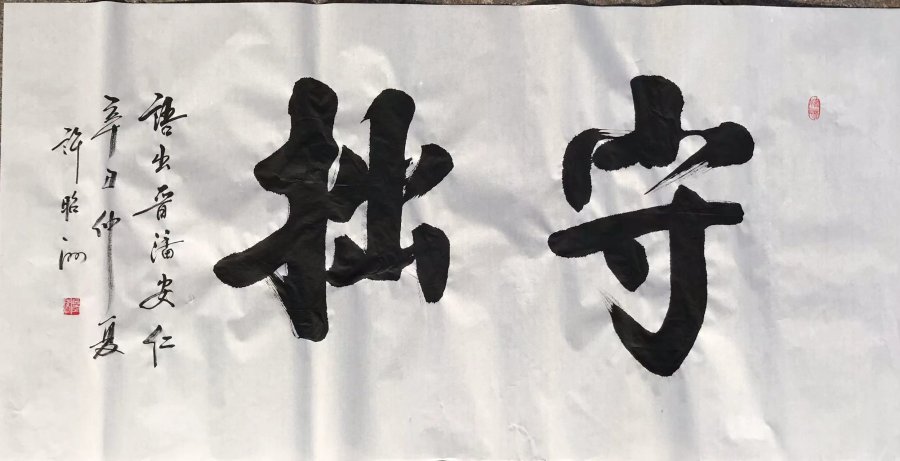 守拙
語出晋潘安仁
辛丑仲夏
許昭洲